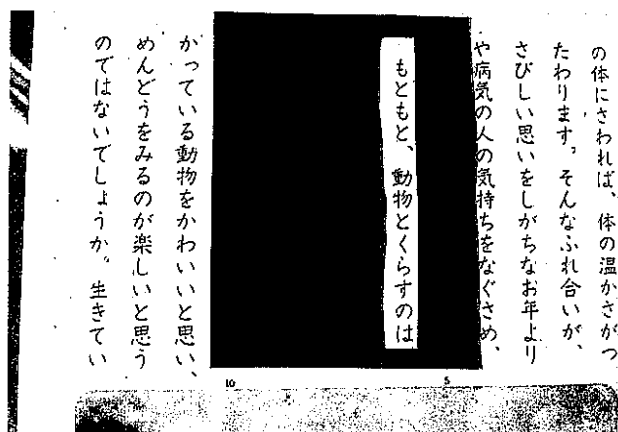 の体にさわれば、体の温かさがつ
たわります。そんなふれ合いが、
さびしい思いをしがちなお年より
や病気の人の気持ちをなぐさめ、
もともと、動物とくらすのは
かっている動物をかわいいと思い、
めんどうをみるのが楽しいと思う
のではないでしょうか。生きてい
5
10